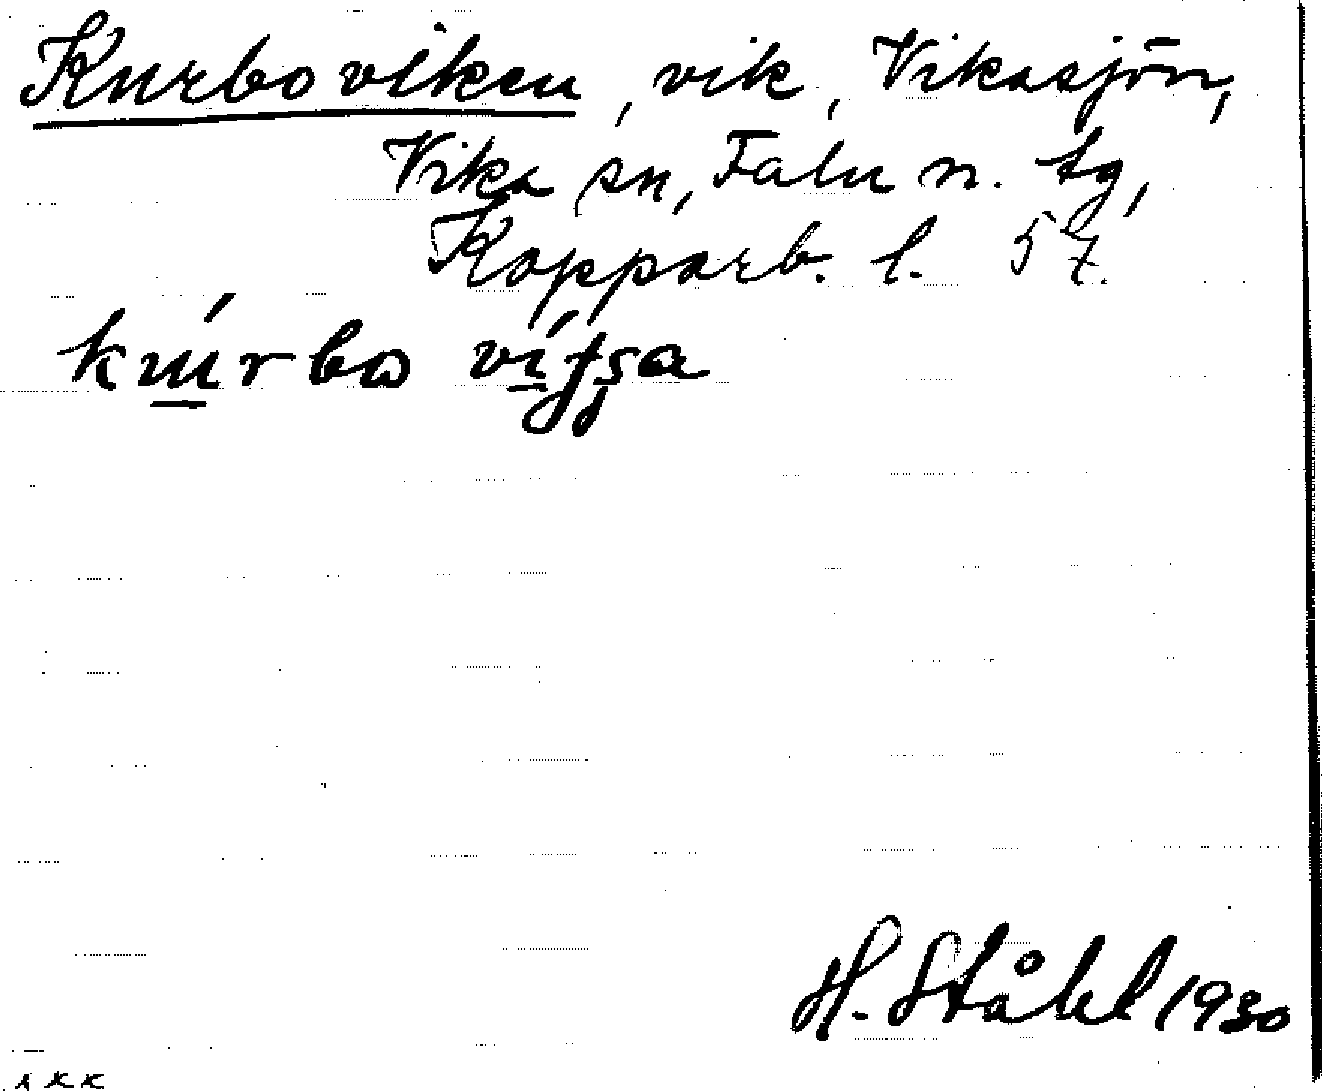 Kurboviken, vik, Vikasjön,
Vika sn, Falu n. tg,
Kopparb. l. 57.
H. Ståhl 1930